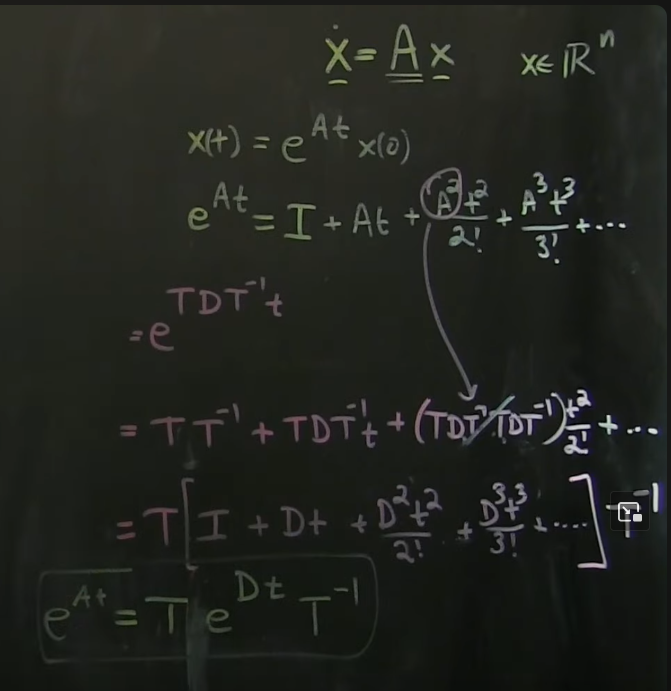 ẋ = A x    x ∈ ℝⁿ
x(t) = e^{At} x(0)
e^{At} = I + At + A²t²/2! + A³t³/3! + ...
= e^{TDT⁻¹t}
= TT⁻¹ + TDT⁻¹t + (TDT⁻¹TDT⁻¹)t²/2! + ...
= T[I + Dt + D²t²/2! + D³t³/3! + ....]T⁻¹
e^{At} = T e^{Dt} T⁻¹